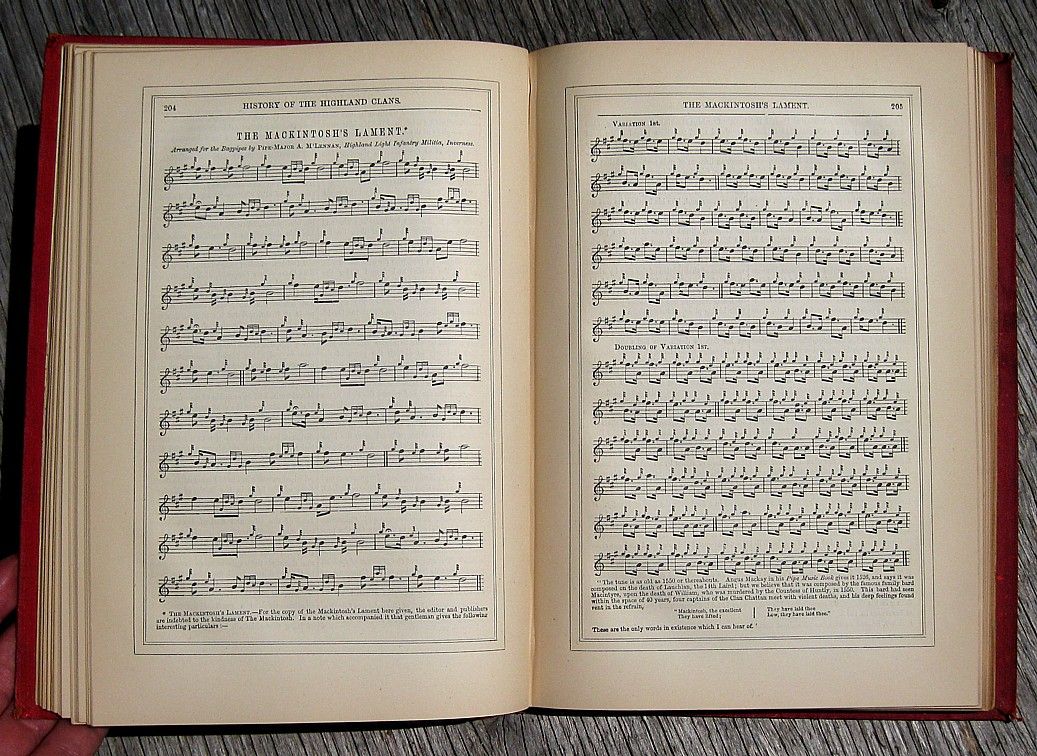 204
HISTORY OF THE HIGHLAND CLANS.
THE MACKINTOSH'S LAMENT.*
Arranged for the Bagpipes by PIPE-MAJOR A. M'LENNAN, Highland Light Infantry Militia, Inverness.
* THE MACKINTOSH'S LAMENT.—For the copy of the Mackintosh's Lament here given, the editor and publishers
are indebted to the kindness of The Mackintosh. In a note which accompanied it that gentleman gives the following
interesting particulars:—
THE MACKINTOSH'S LAMENT.
205
VARIATION 1st.
DOUBLING OF VARIATION 1ST.
"The tune is as old as 1550 or thereabouts. Angus Mackay in his Pipe Music Book gives it 1526, and says it was
composed on the death of Lauchlan, the 14th Laird; but we believe that it was composed by the famous family bard
Macintyre, upon the death of William, who was murdered by the Countess of Huntly, in 1550. This bard had seen
within the space of 40 years, four captains of the Clan Chattan meet with violent deaths, and his deep feelings found
vent in the refrain,
"Mackintosh, the excellent
They have lifted;
They have laid thee
Low, they have laid thee."
These are the only words in existence which I can hear of."